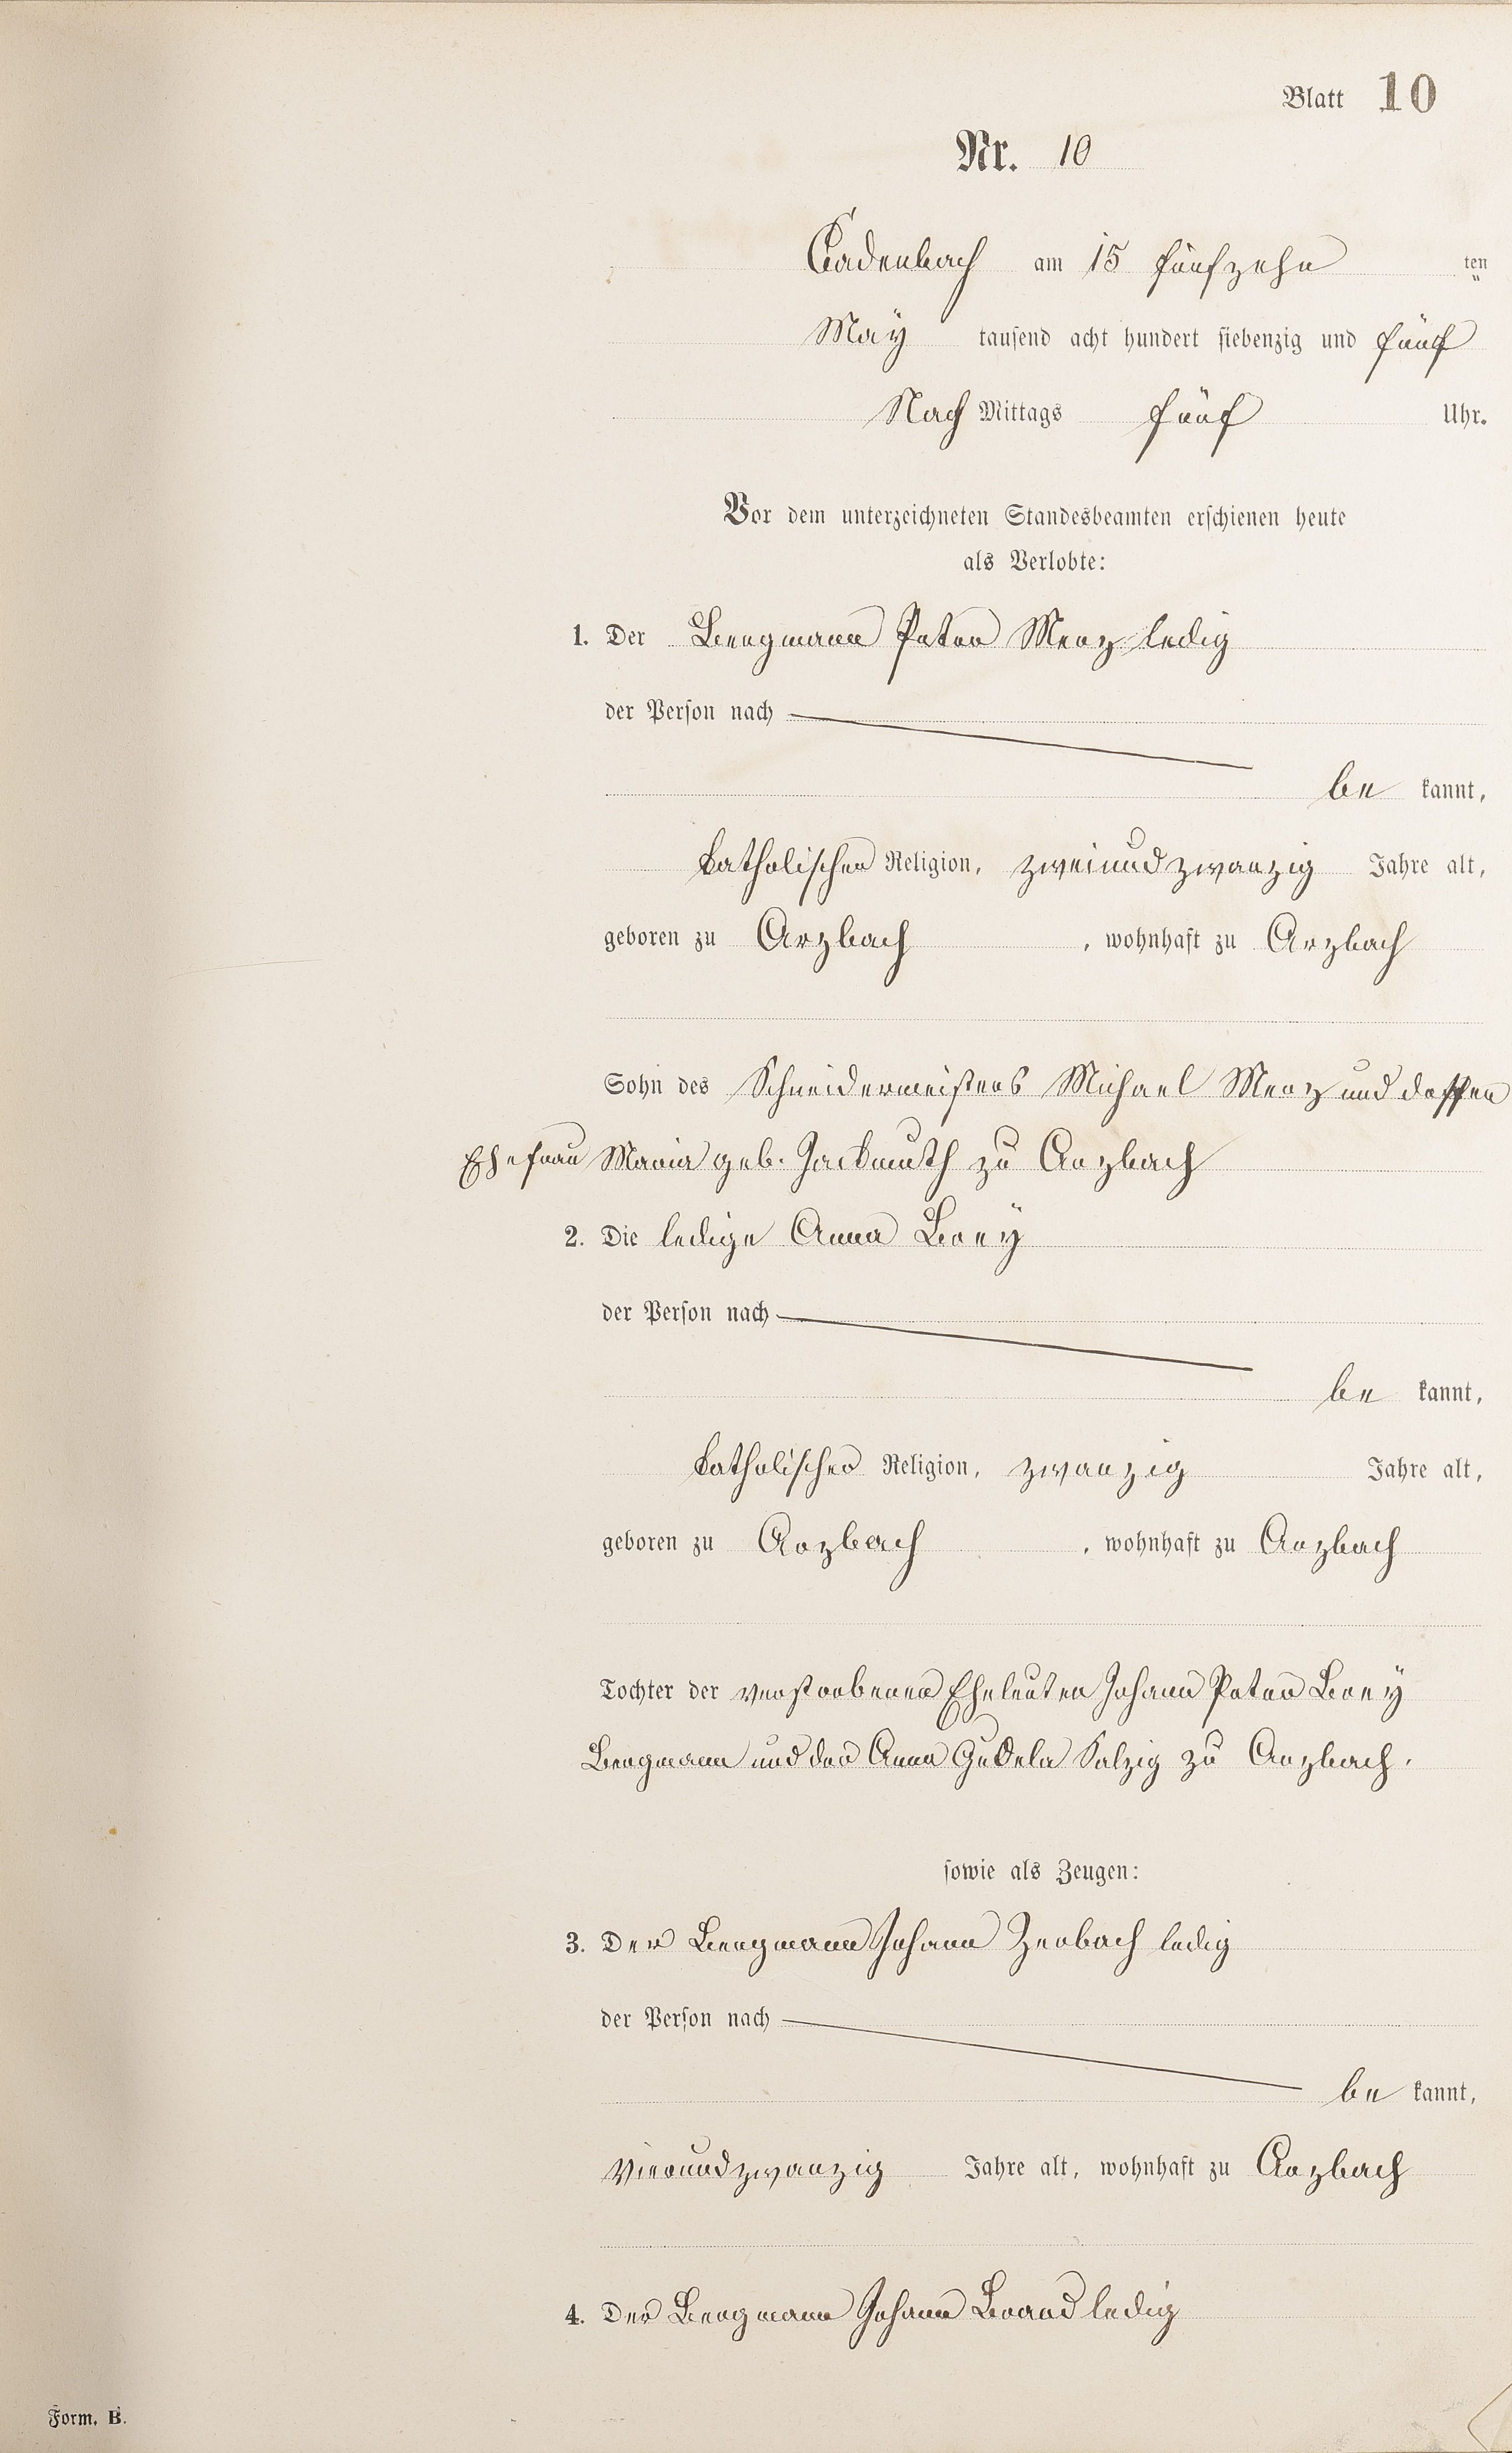 Blatt 10
Nr. 10
Cadenbach am 15 fünfzehn ten
May tausend acht hundert siebenzig und fünf
Nach Mittags fünf Uhr.
Vor dem unterzeichneten Standesbeamten erschienen heute
als Verlobte:
1. Der Bergmann Peter Merz ledig
der Person nach
be kannt,
katholischer Religion, zweiundzwanzig Jahre alt,
geboren zu Arzbach , wohnhaft zu Arzbach
Sohn des Schneidermeisters Michael Merz und dessen
Ehefrau Maria geb. Jackmuth zu Arzbach
2. Die ledige Anna Breÿ
der Person nach
be kannt,
katholischer Religion, zwanzig Jahre alt,
geboren zu Arzbach , wohnhaft zu Arzbach
Tochter der verstorbenen Eheleuten Johann Peter Brey
Bergmann und der Anna Gudela Salzig zu Arzbach.
sowie als Zeugen:
3. Der Bergmann Johann Zerbach ledig
der Person nach
be kannt,
vierundzwanzig Jahre alt, wohnhaft zu Arzbach
4. Der Bergmann Johann Brand ledig
Form. B.